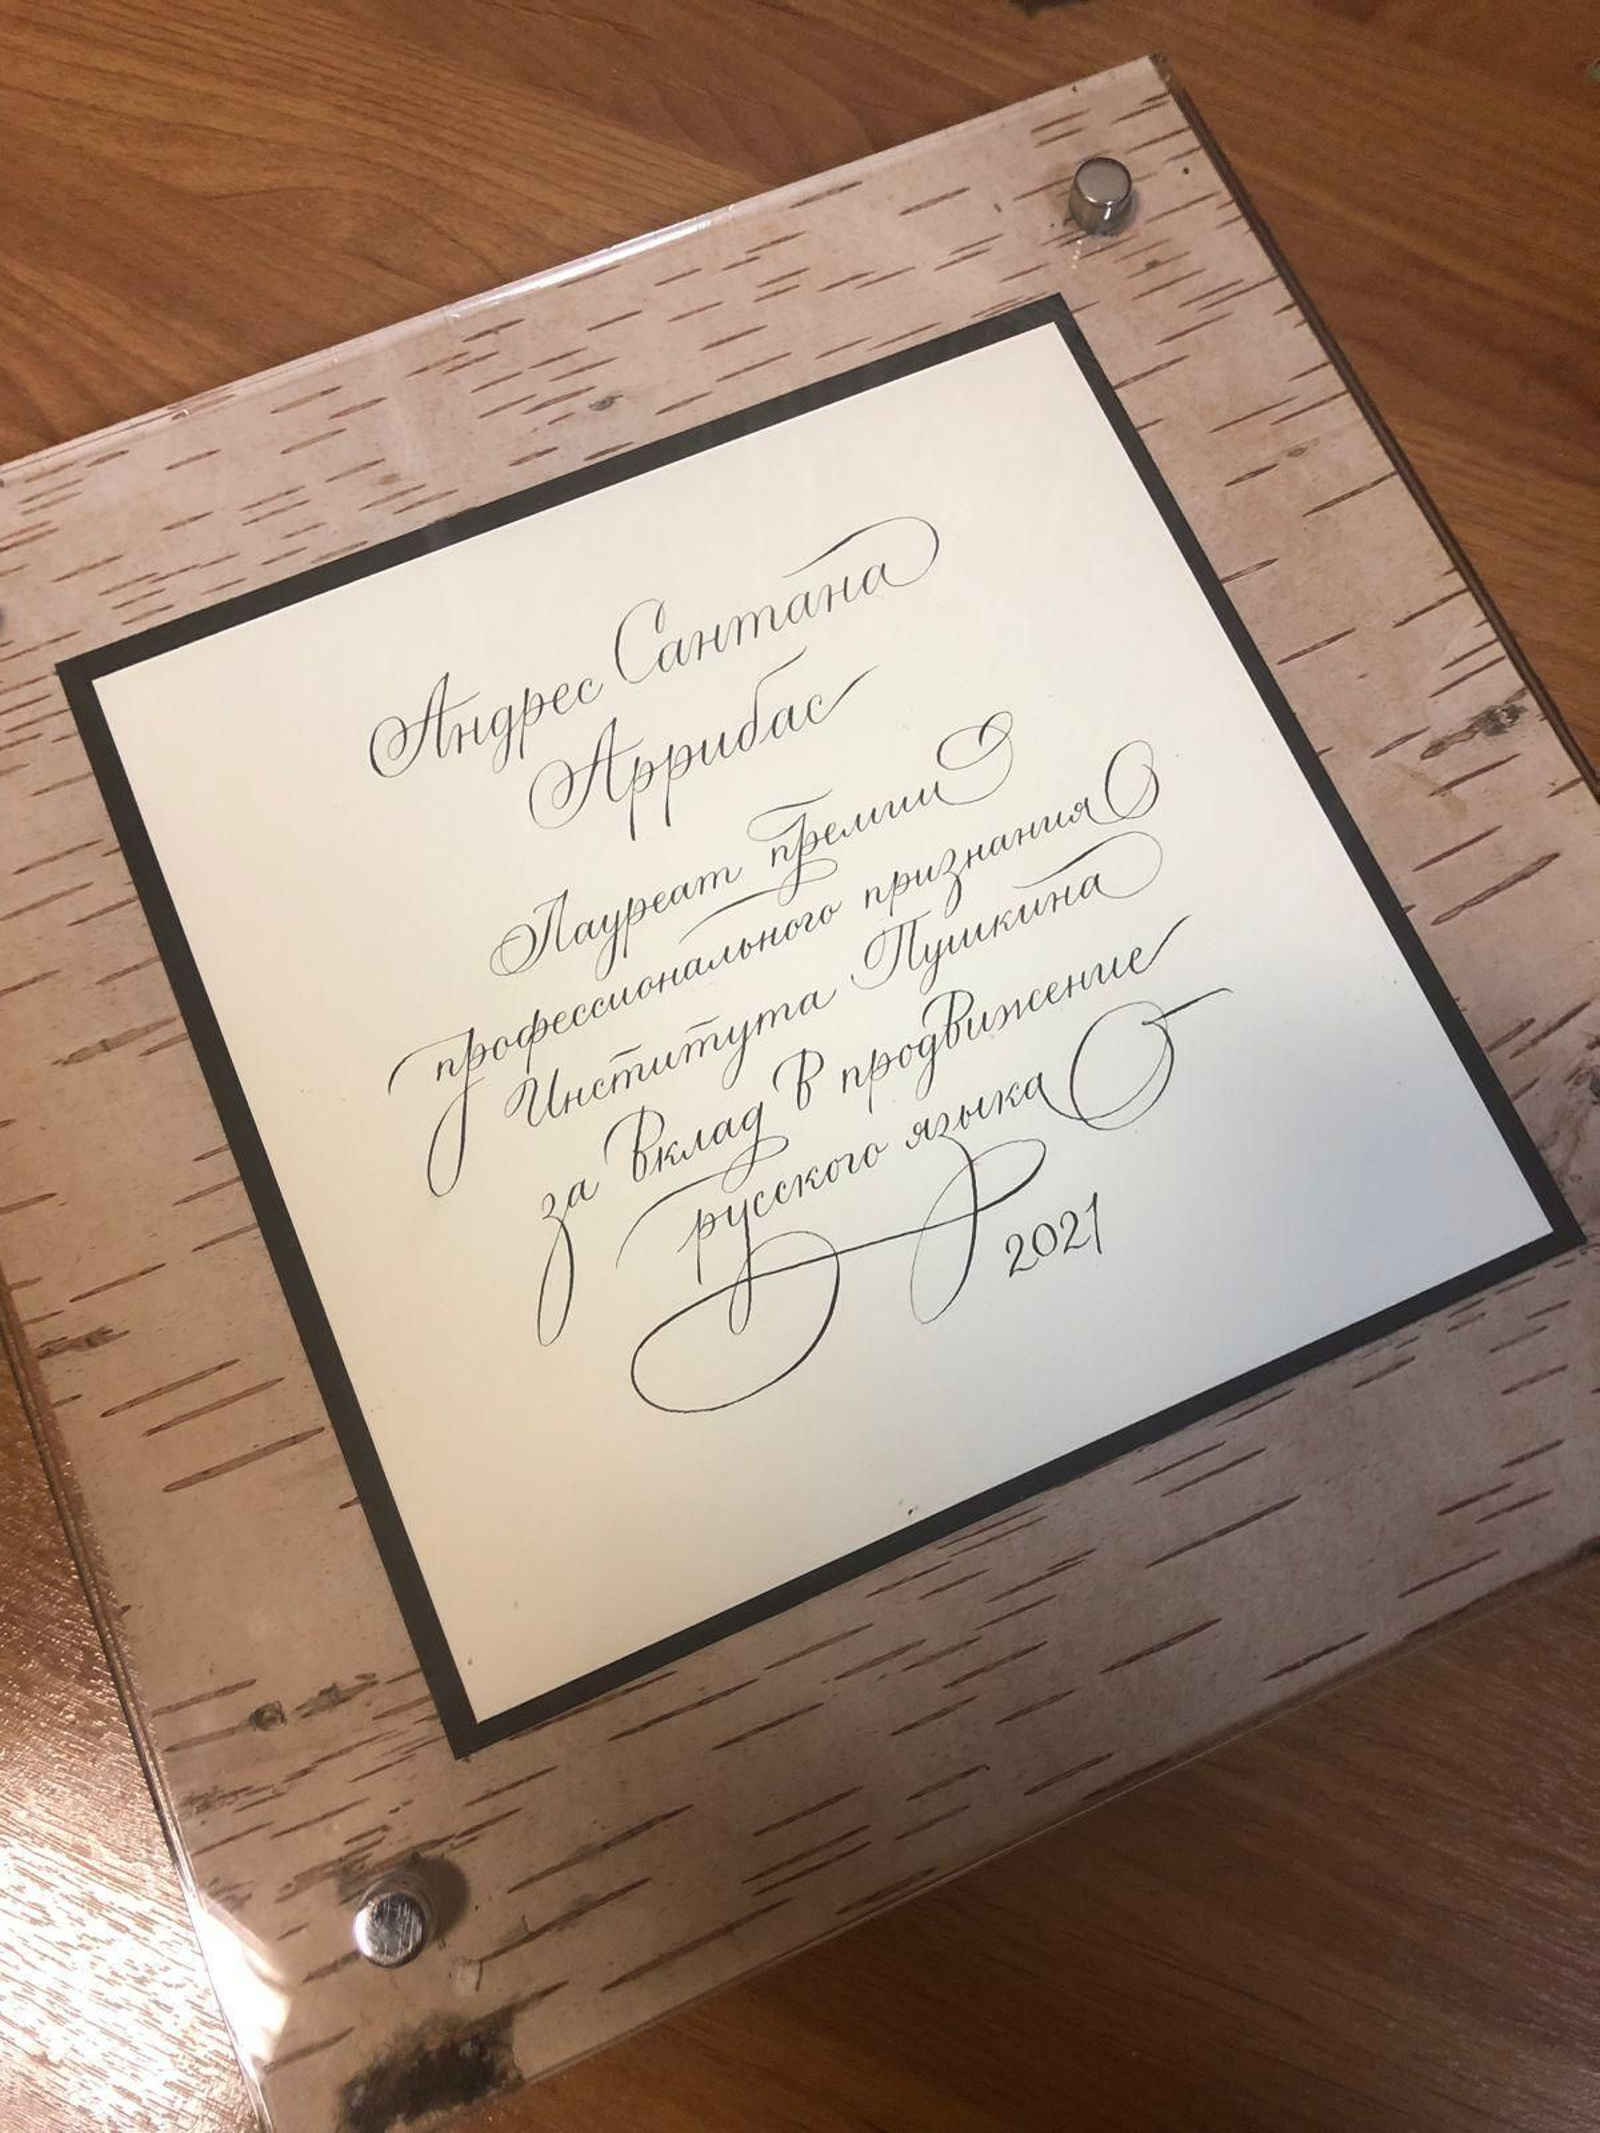 Андрес Сантана
Аррибас
Лауреат премии
профессионального признания
Института Пушкина
за вклад в продвижение
русского языка
2021